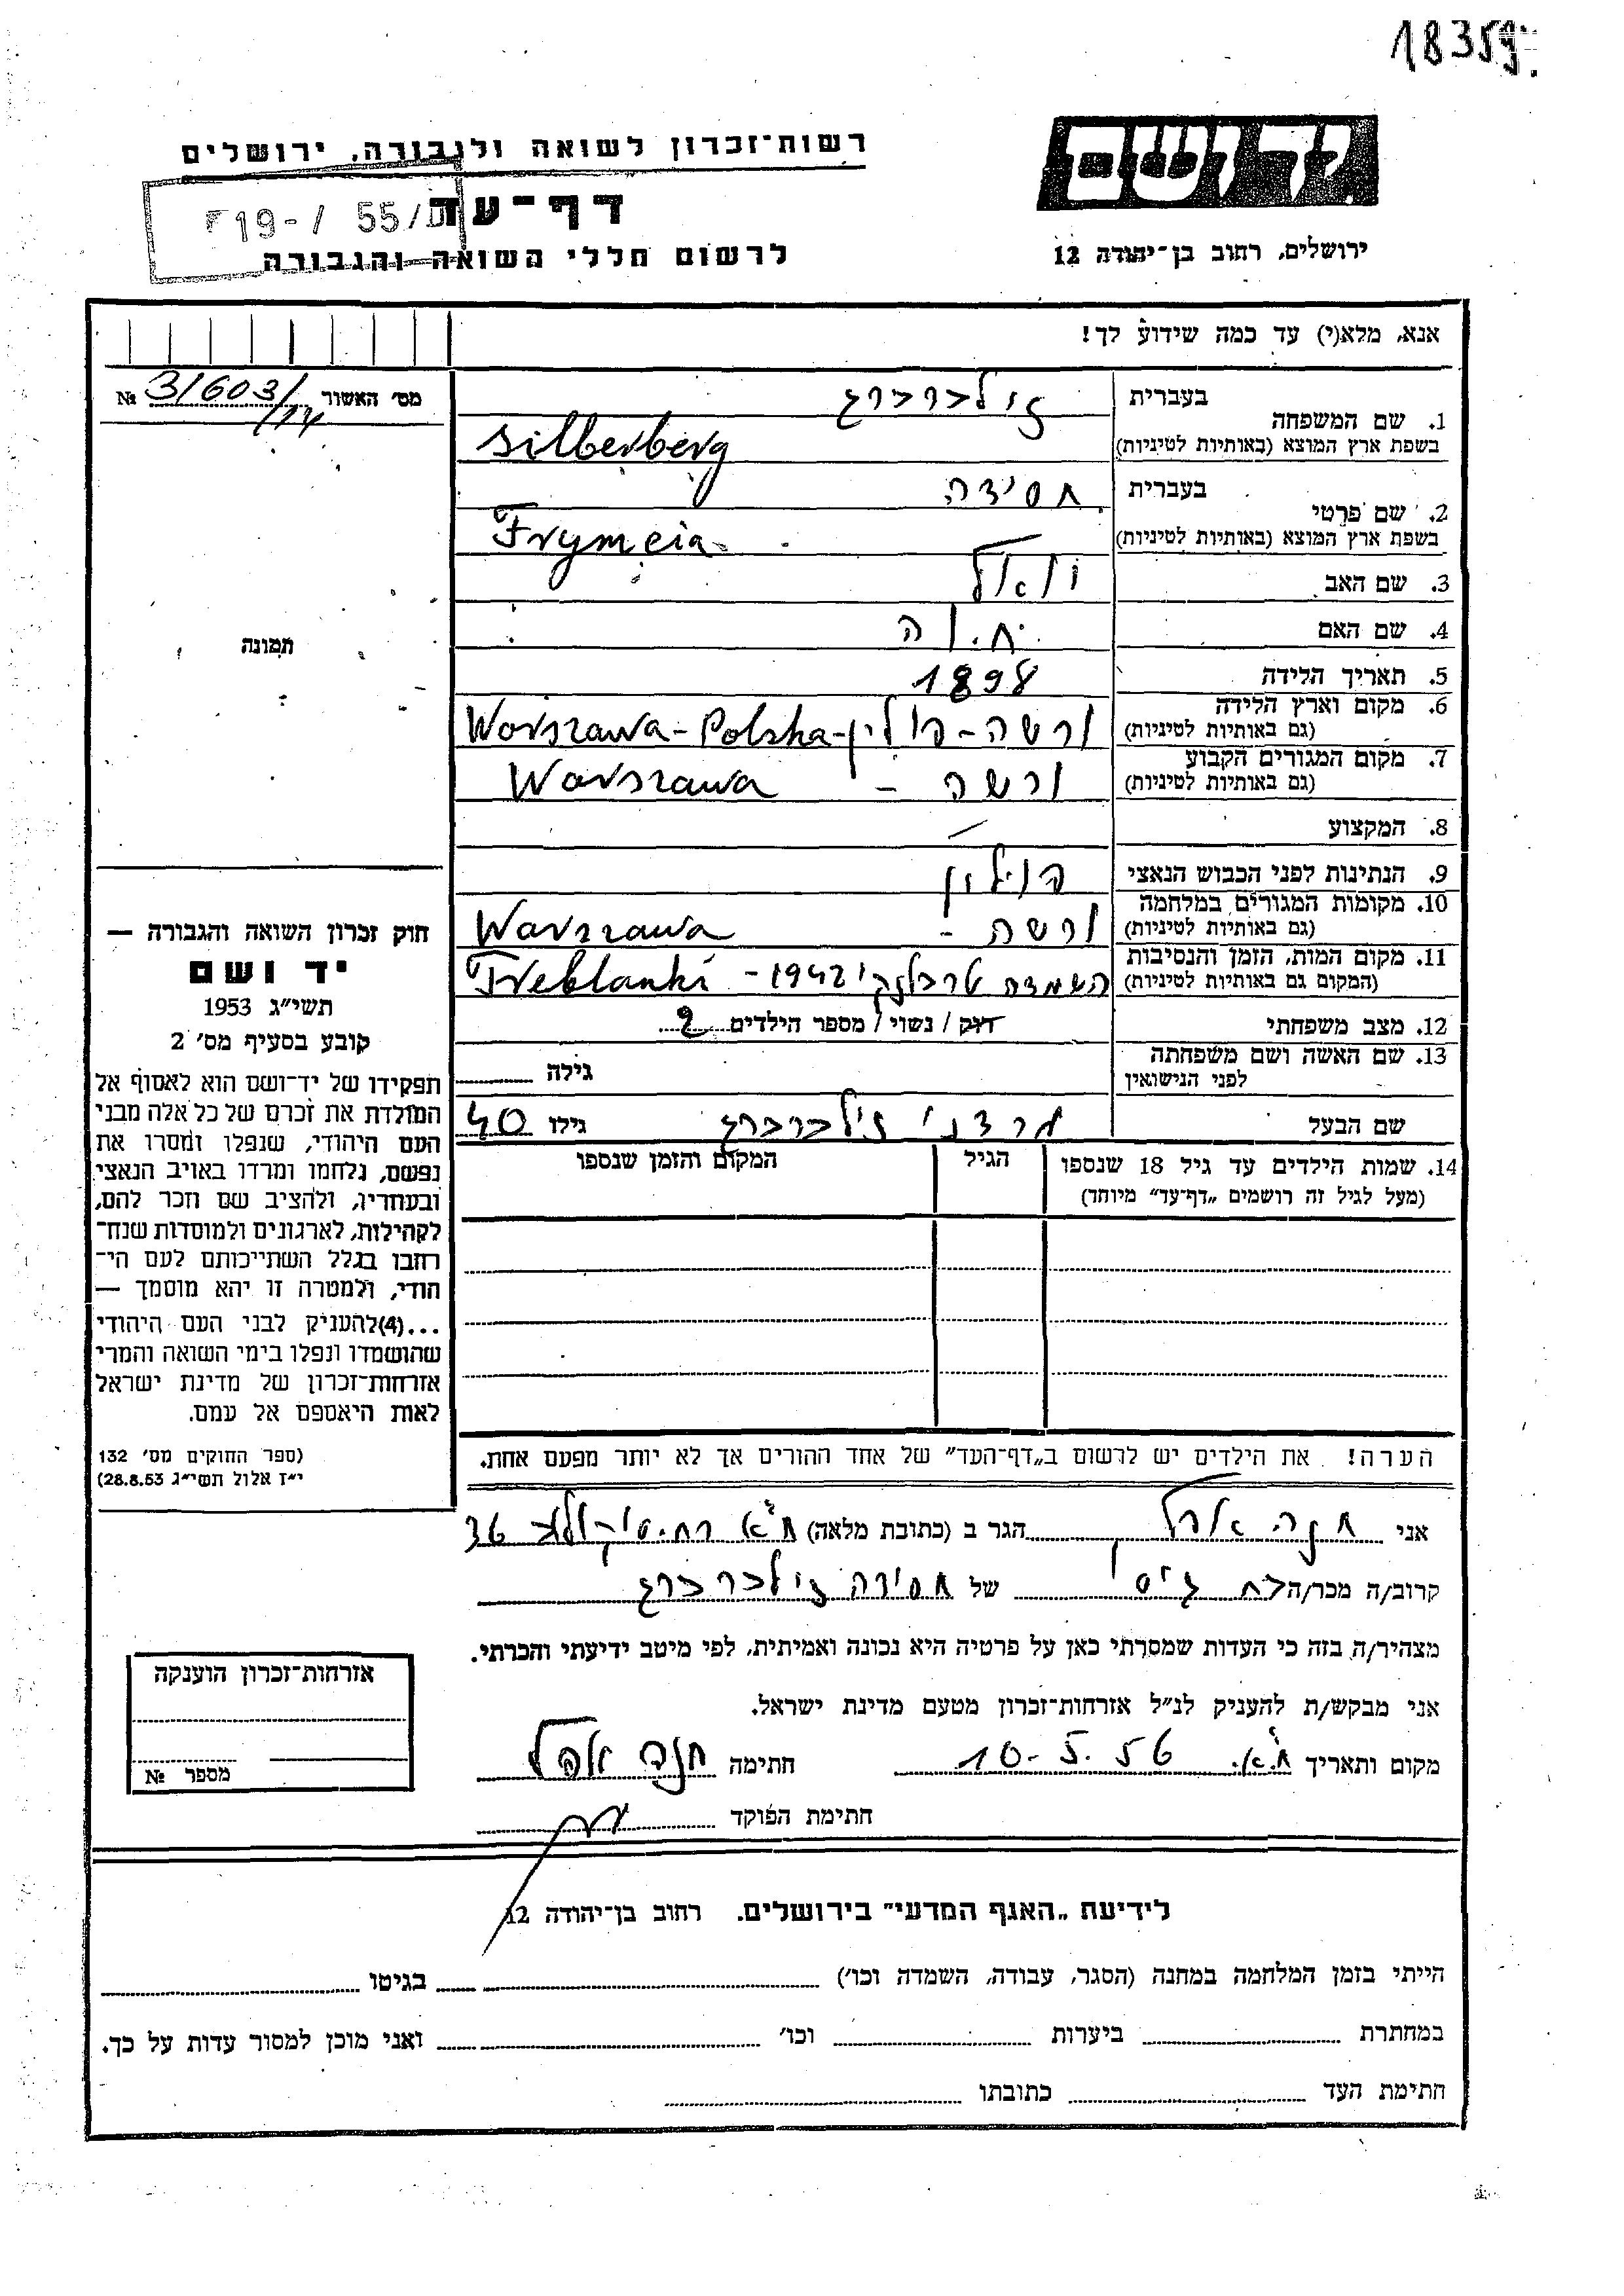 18359
יד ושם
רשות־זכרון לשואה ולגבורה, ירושלים
דף־עד
19-/ 55/
לרשום חללי השואה והגבורה
ירושלים, רחוב בן־יהודה 12
אנא, מלא(י) עד כמה שידוע לך!
מס׳ האשור 3/603/14 №
תמונה
חוק זכרון השואה והגבורה —
יד ושם
תשי״ג 1953
קובע בסעיף מס׳ 2
תפקידו של יד־ושם הוא לאסוף אל
המולדת את זכרם של כל אלה מבני
העם היהודי, שנפלו ומסרו את
נפשם, נלחמו ומרדו באויב הנאצי
ובעוזריו, ולהציב שם וזכר להם,
לקהילות, לארגונים ולמוסדות שנח־
רחבו בגלל השתייכותם לעם הי־
הודי, ולמטרה זו יהא מוסמך —
...(4)להעניק לבני העם היהודי
שהושמדו ונפלו בימי השואה והמרי
אזרחות־זכרון של מדינת ישראל
לאות היאספם אל עמם.
(ספר החוקים מס׳ 132
י״ז אלול תשי״ג 28.8.53)
1. שם המשפחה בעברית זילברברג
בשפת ארץ המוצא (באותיות לטיניות) Silberberg
2. שם פרטי בעברית חסידה
בשפת ארץ המוצא (באותיות לטיניות) Frymeia
3. שם האב
4. שם האם
5. תאריך הלידה 1898
6. מקום וארץ הלידה
(גם באותיות לטיניות) ורשה - פולין - Warszawa - Polska
7. מקום המגורים הקבוע
(גם באותיות לטיניות) ורשה - Warszawa
8. המקצוע —
9. הנתינות לפני הכבוש הנאצי פולין
10. מקומות המגורים במלחמה
(גם באותיות לטיניות) ורשה - Warszawa
11. מקום המות, הזמן והנסיבות
(המקום גם באותיות לטיניות) השמדה טרבלנקי 1942 - Treblanki
12. מצב משפחתי רווק / נשוי / מספר הילדים 2
13. שם האשה ושם משפחתה
לפני הנישואין גילה
שם הבעל מרדכי זילברברג גילו 40
14. שמות הילדים עד גיל 18 שנספו הגיל המקום והזמן שנספו
(מעל לגיל זה רושמים „דף־עד״ מיוחד)
הערה! את הילדים יש לרשום ב„דף־העד״ של אחד ההורים אך לא יותר מפעם אחת.
אני חנה הגר ב (כתובת מלאה) ת״א רח. 36
קרוב/ה מכר/ה גיסן של חסידה זילברברג
מצהיר/ה בזה כי העדות שמסרתי כאן על פרטיה היא נכונה ואמיתית, לפי מיטב ידיעתי והכרתי.
אני מבקש/ת להעניק לנ״ל אזרחות־זכרון מטעם מדינת ישראל.
מקום ותאריך ת.א. 10-5.56 חתימה חנה
חתימת הפוקד
אזרחות־זכרון הוענקה
מספר №
לידיעת „האגף המדעי״ בירושלים. רחוב בן־יהודה 12
הייתי בזמן המלחמה במחנה (הסגר, עבודה, השמדה וכו׳) בגיטו
במחתרת ביערות וכו׳ ואני מוכן למסור עדות על כך.
חתימת העד כתובתו